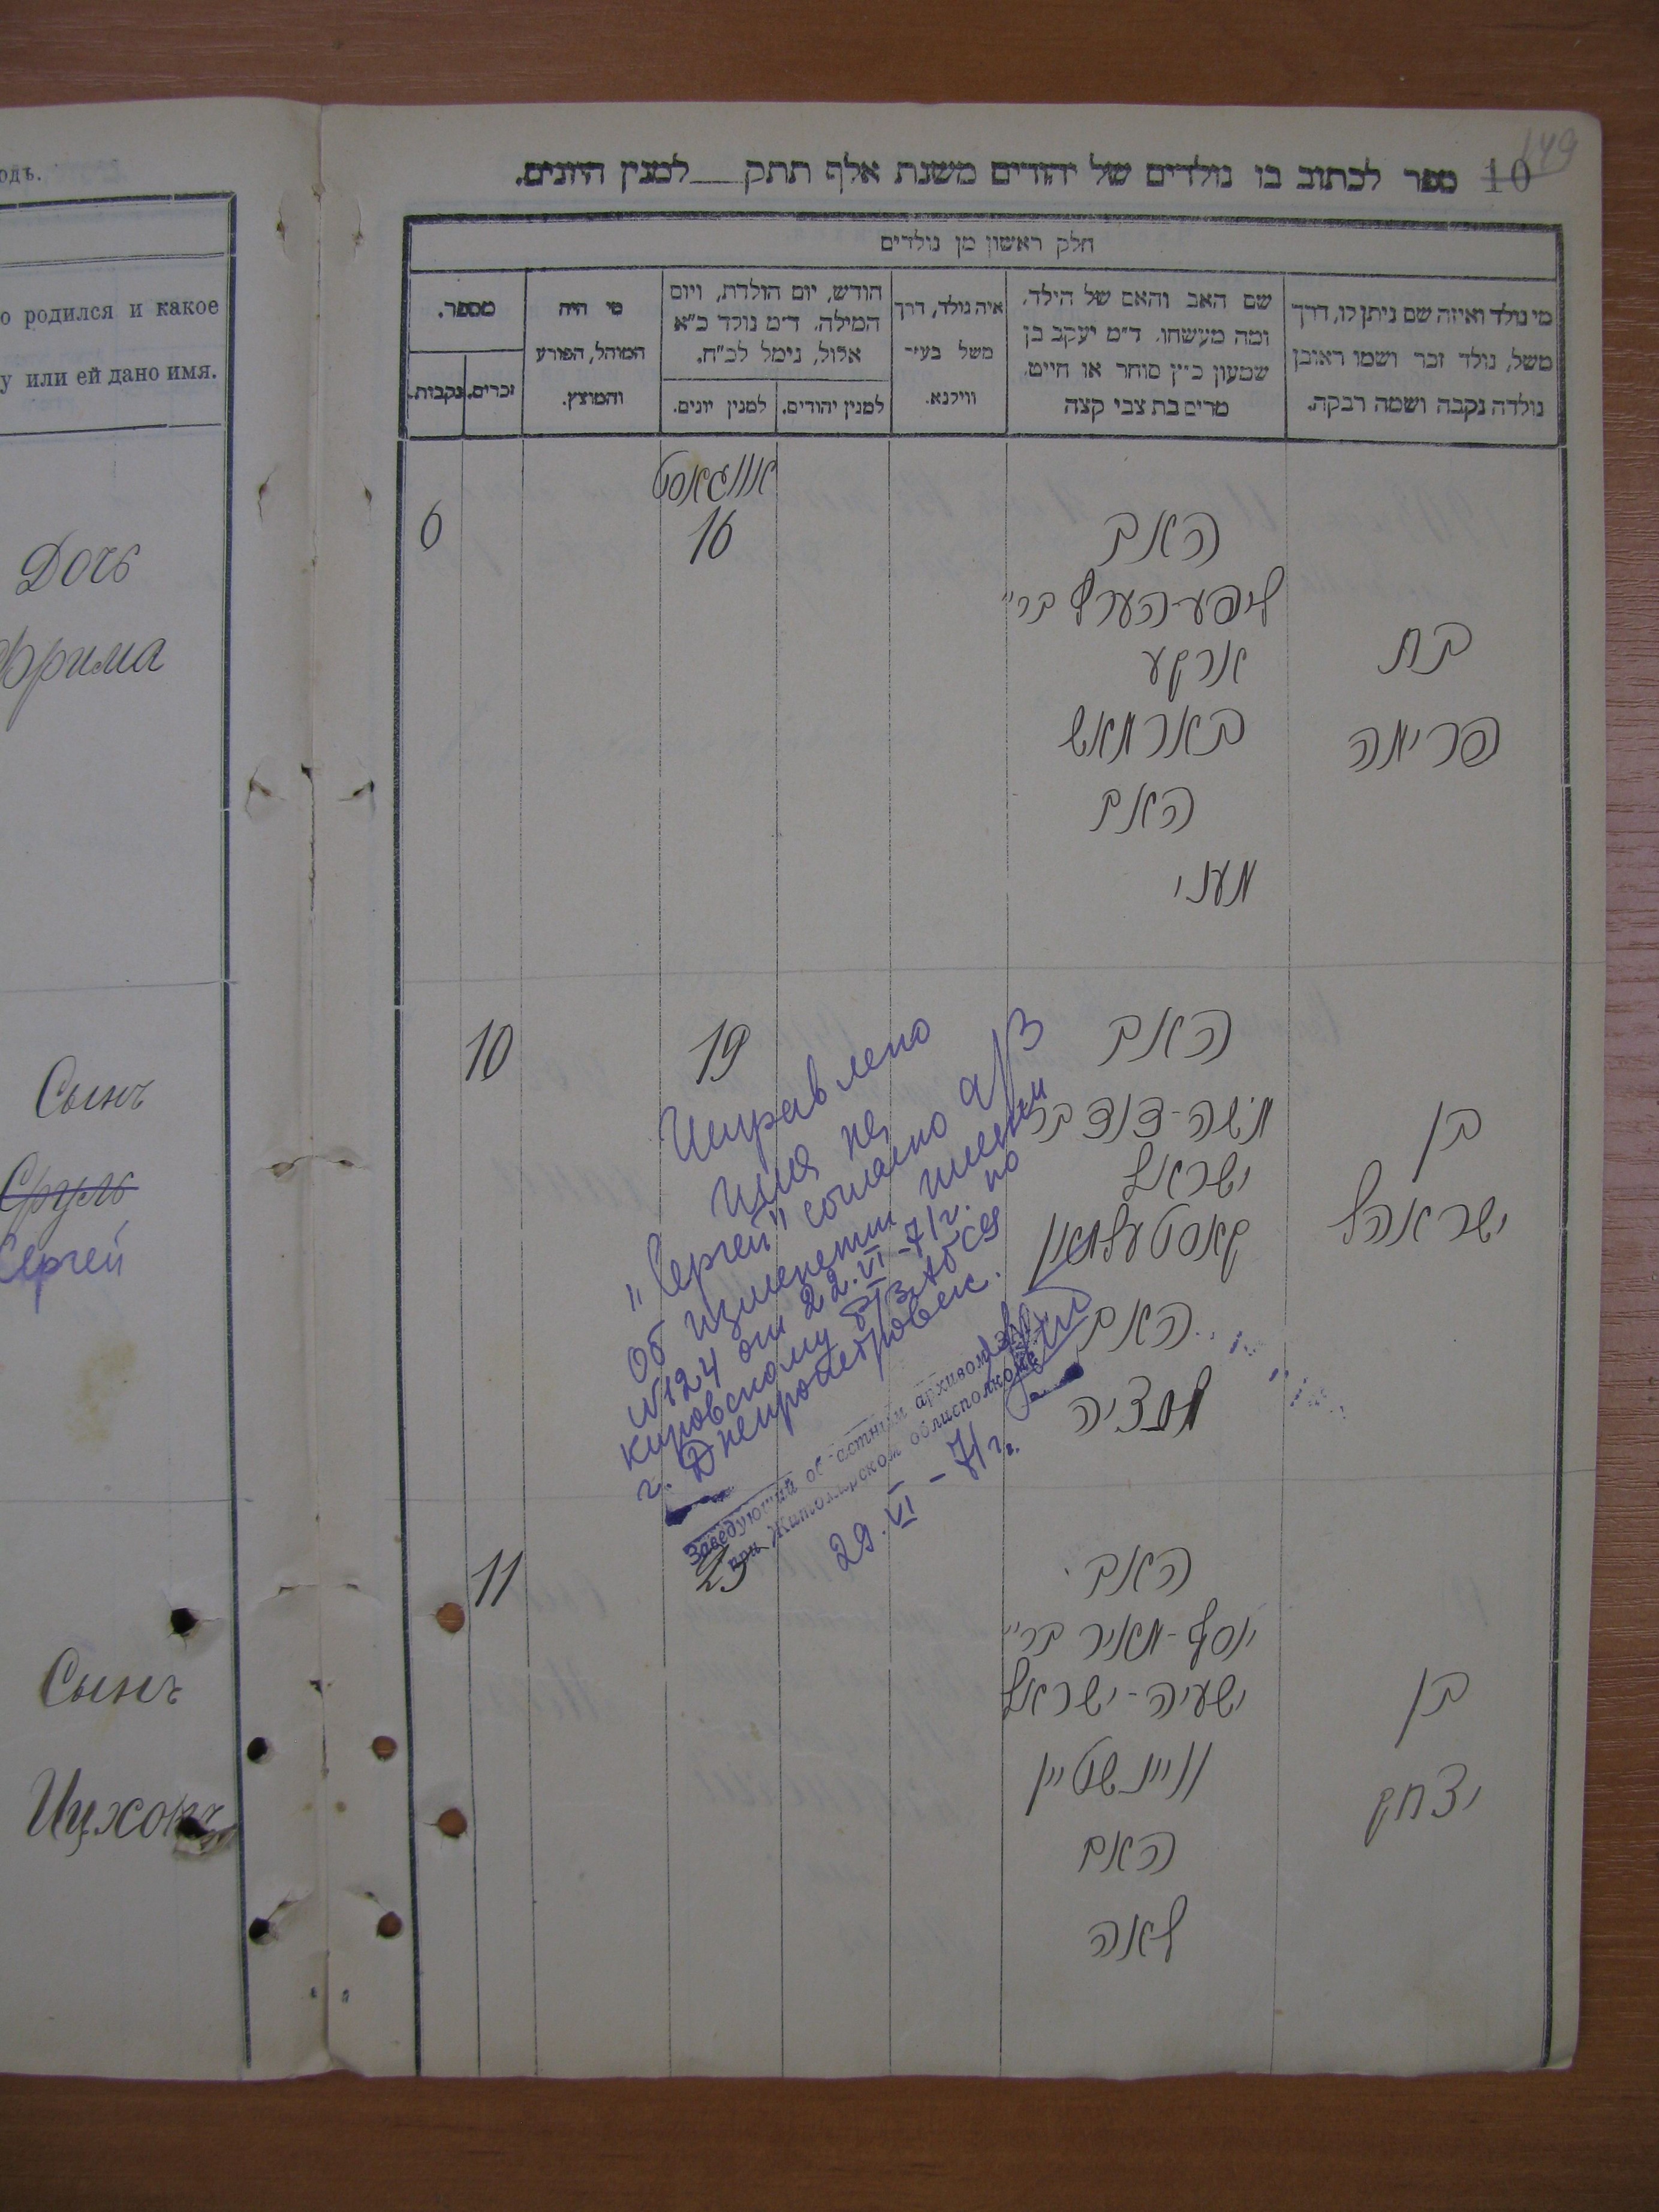 одъ.
о родился и какое
у или ей дано имя.
Дочь
Фрима
Сынъ
Сруль
Сергей
Сынъ
Ицхокъ
149
10 ספר לכתוב בו נולדים של יהודים משנת אלף תתק__למנין היונים.
חלק ראשון מן נולדים
מי נולד ואיזה שם ניתן לו, דרך
משל, נולד זכר ושמו ראובן
נולדה נקבה ושמה רבקה.
שם האב והאם של הילד,
ומה מעשהו. ד״מ יעקב בן
שמעון כ״ץ סוחר או חייט.
מרים בת צבי קצה
איה נולד, דרך
משל בעיר
ווילנא.
חודש, יום הולדת, ויום
המילה. ד״מ נולד כ״א
אלול, נימל לכ״ח.
למנין יהודים.
למנין יונים.
מי היה
המוהל, הפורע
והמוצץ.
מספר.
זכרים.
נקבות.
אווגאסט
6
16
האב
ליפע-הערש בר״
ארקע
באר
האם
מעני
בת
פרימה
10
19
האב
משה-דוד בר
ישראל
קאסטעלמאן
האם
בן
ישראהל
Исправлено
имя на
"Сергей" согласно а/з
Об изменении имени
№124 от 22.VI-71г. по
Кировскому р/ЗАГСа
г. Днепропетровск.
Заведующий областным архивом ЗАГС
при Житомирском облисполкоме
29.VI-71г.
11
23
האב
יוסף-מאיר בר״
ישעיה-ישראל
וויינשטיין
האם
לאה
בן
יצחק